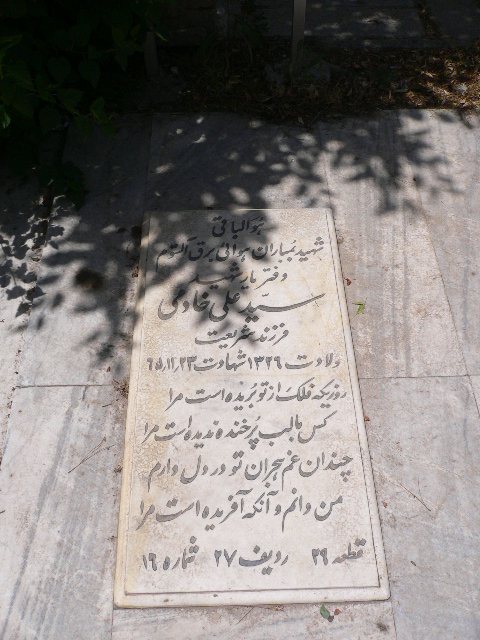 هوالباقی
شهید بمباران هوائی برق آلستوم
و فتر یار شهید
سید علی خادمی
فرزند شریعت
ولادت ۱۳۲۶ شهادت ۶۵٫۱۱٫۲۳
روزیکه فلک از تو بُریده است مرا
کس با لب پُر خنده ندیده است مرا
چندان غم هجران تو در دل دارم
من دانم و آنکه آفریده است مرا
قطعه ۲۹ ردیف ۲۷ شماره ۱۶